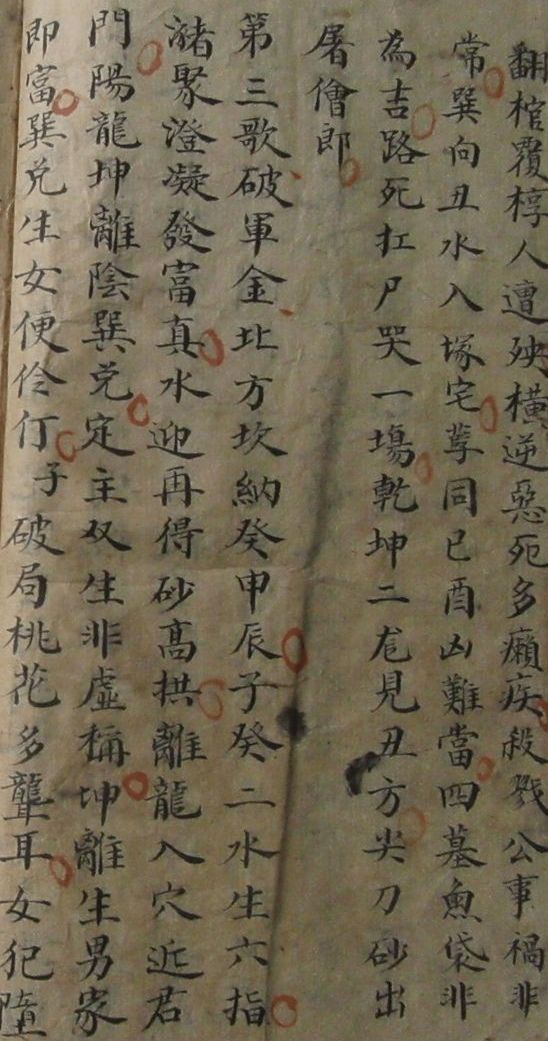 翻棺覆椁人遭殃横逆惡死多癩疾殺戮公事禍非
常巽向丑水入塚宅莩同巳酉凶難當四墓魚袋非
為吉路死扛尸哭一塲乾坤二龙見丑方尖刀砂出
屠儈郎
第三歌破軍金北方坎納癸申辰子癸二水生六指
瀦聚澄凝發富真水迎再得砂高拱離龍入穴近君
門陽龍坤離陰巽兌定主双生非虛稱坤離生男家
即富巽兌生女便伶仃子破局桃花多聾耳女犯墮